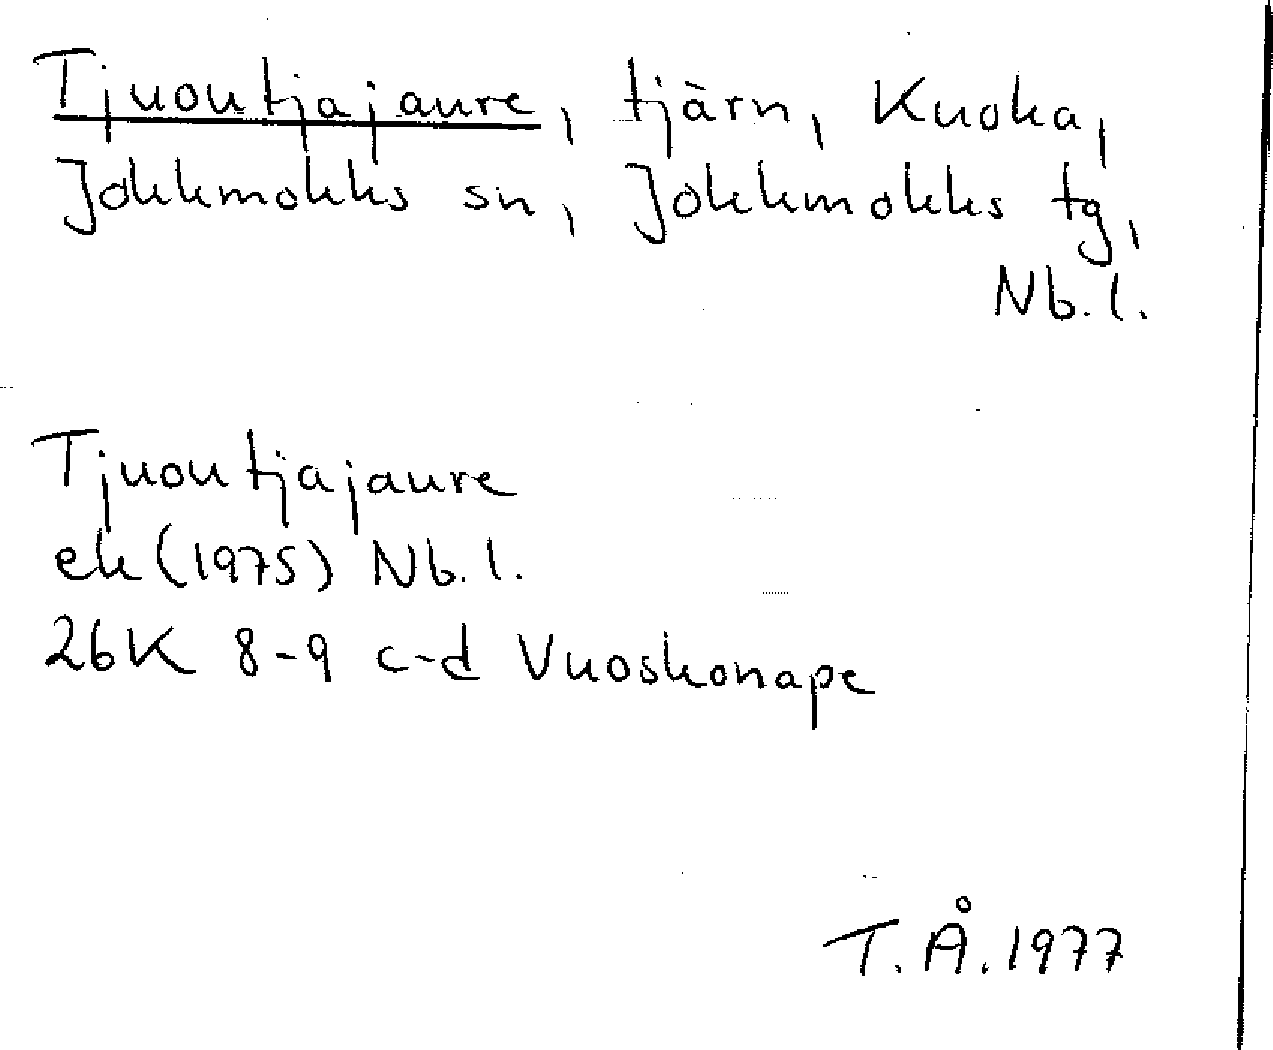 Tjuoutjajaure, tjärn, Kuoka,
Jokkmokks sn, Jokkmokks tg,
Nb.l.
Tjuoutjajaure
ek (1975) Nb.l.
26K 8-9 c-d Vuoskonape
T.Å.1977